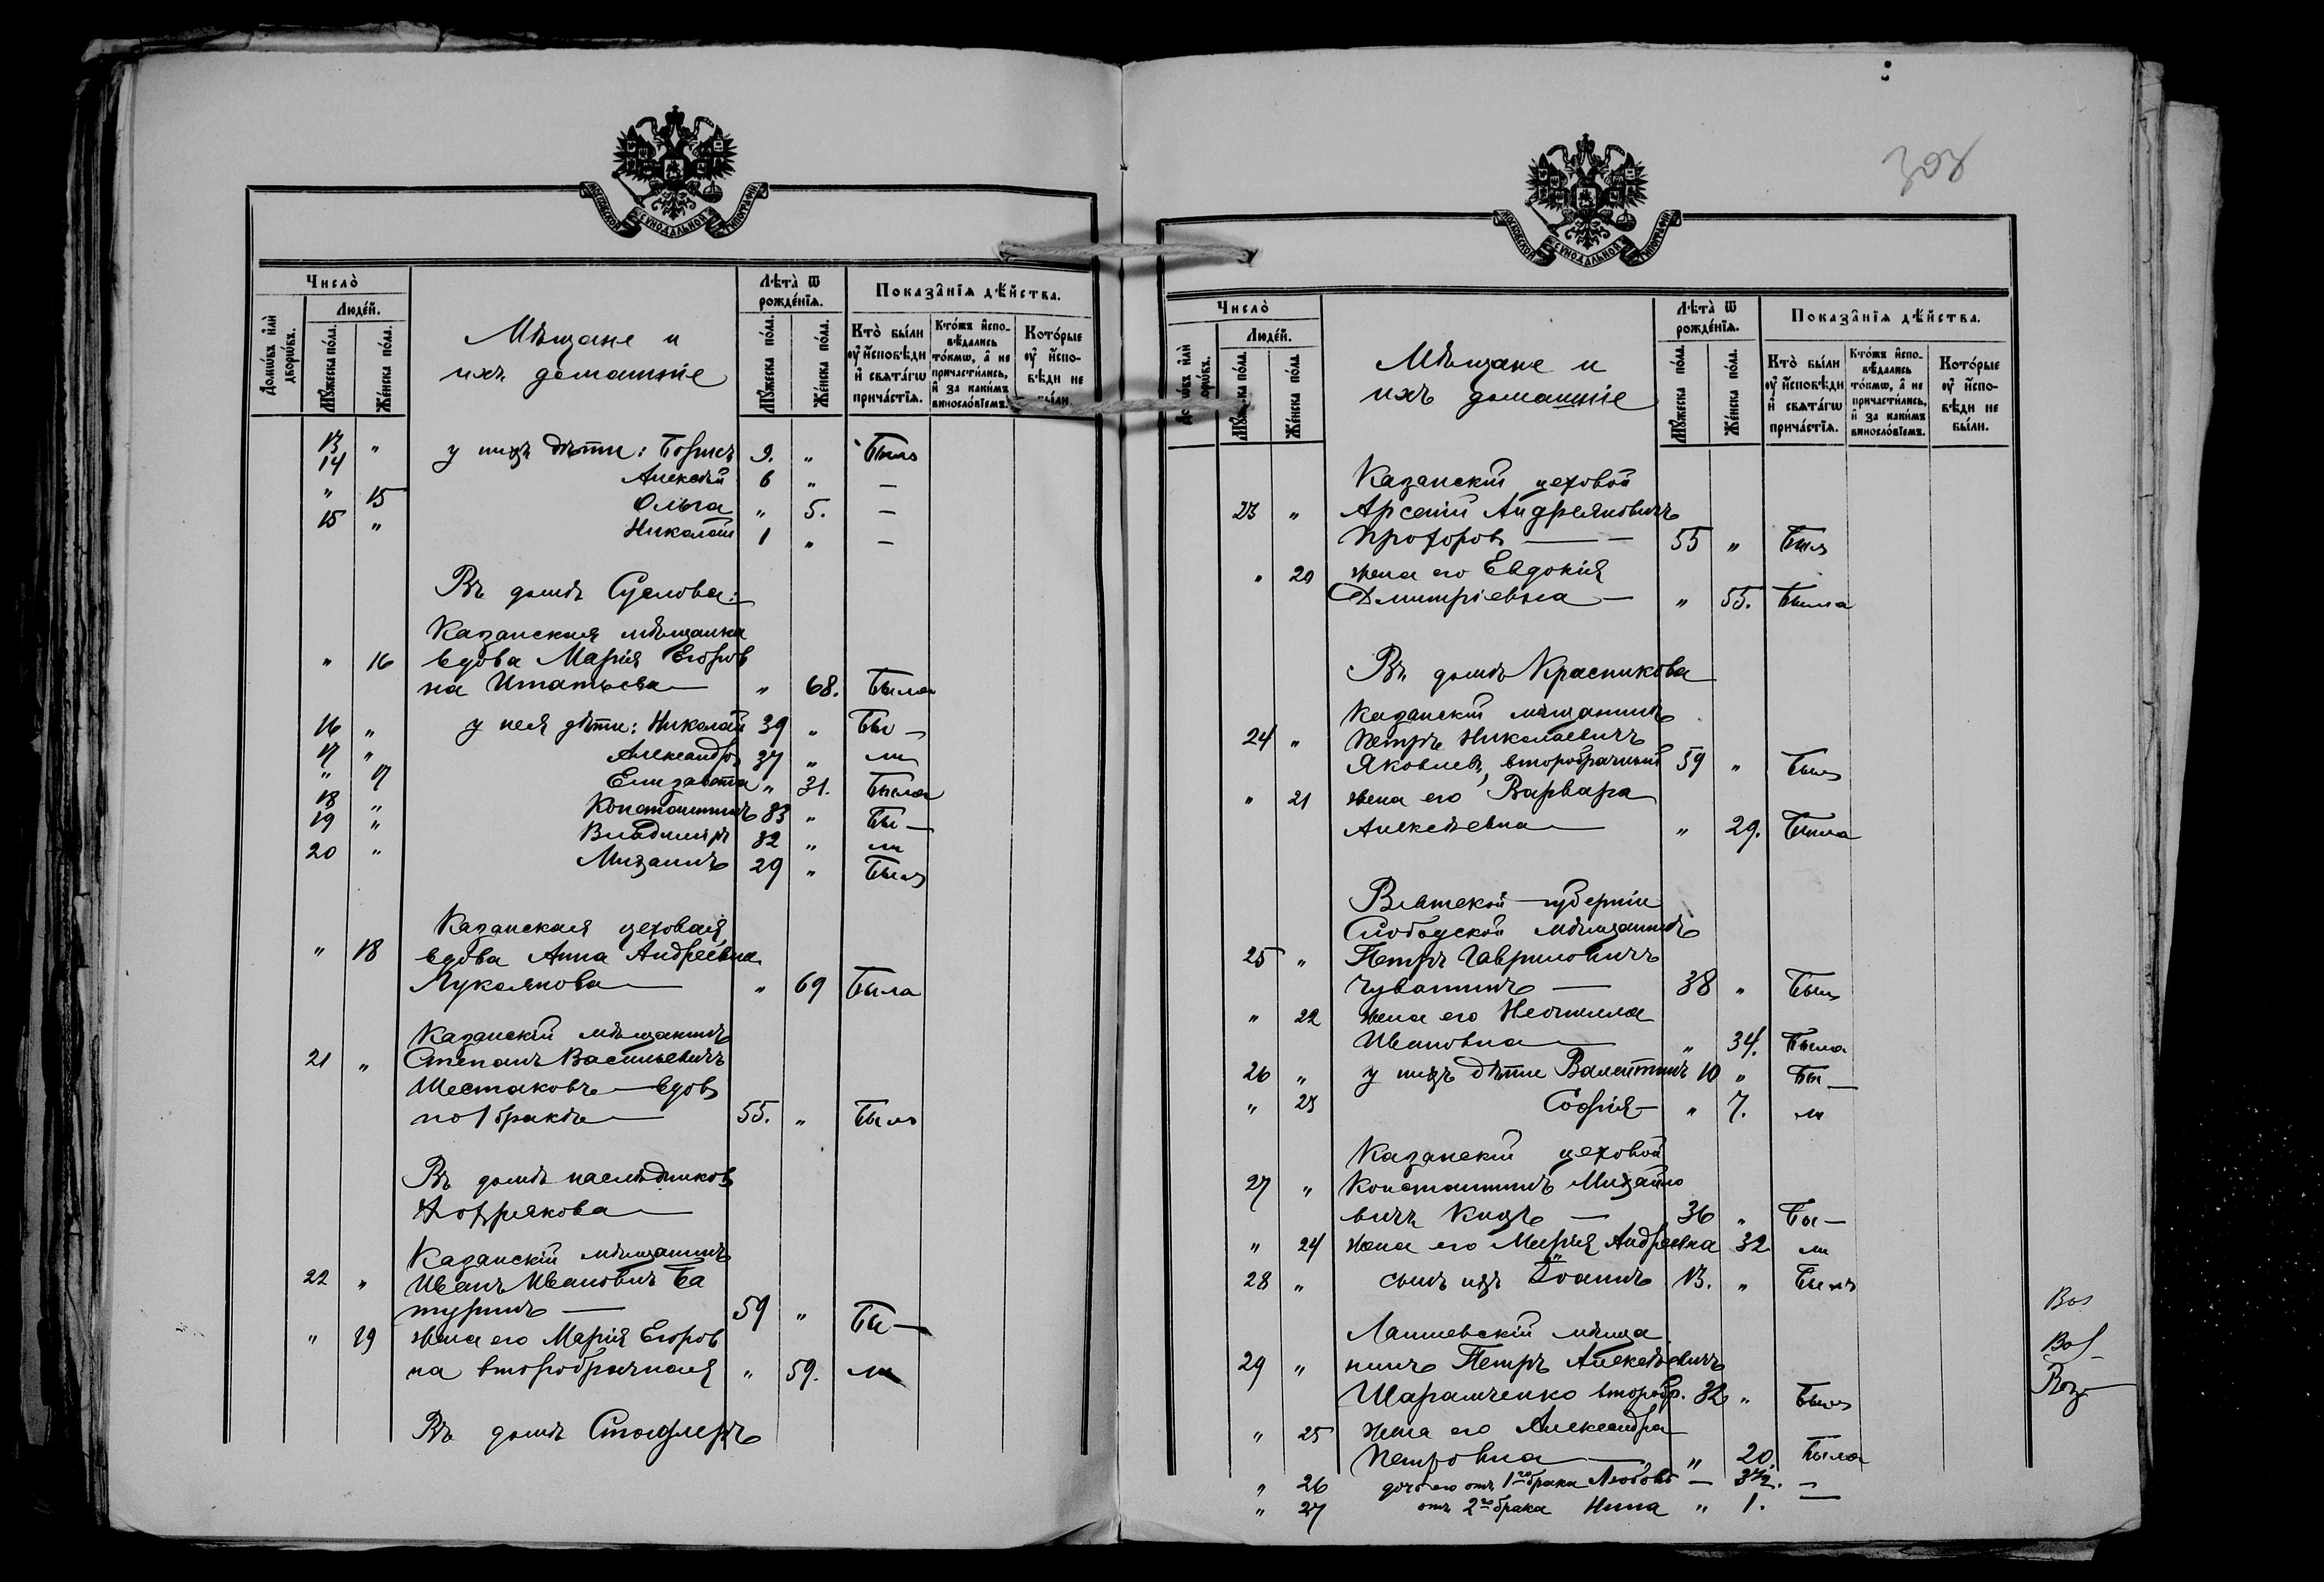 МОСКОВСКОЙ СУНОДАЛЬНОЙ ТИПОГРАФІИ
Число̀
Людéй.
Домѡвъ и҆лѝ дворѡвъ.
Мꙋжеска пола.
Женска пола.
Мѣщане и
ихъ домашніе
Лѣта̀ ѿ рождéнїѧ.
Мꙋжеска пола.
Женска пола.
Показа̂нїѧ дѣ́йства.
Кто̀ были ᲂу҆ и҆сповѣди и҆ свѧта́гѡ прича́стїѧ.
Кто́жъ и҆спо-вѣдались то́кмѡ, а҆ не причасти́лись, и҆ за каки́мъ винословїемъ.
Кото́рые ᲂу҆ и҆спо-вѣди не были.
13 " у нихъ дѣти: Борисъ 9. " Былъ
14 Алексѣй 6 " —
" 15 Ольга " 5. —
15 " Николай 1 " —
Въ домѣ Суслова:
Казанская мѣщанка
" 16 вдова Марія Егоров
на Игнатьева — " 68. Была
16 " у нея дѣти: Николай 39 " Бы —
17 " Александръ 37 " ли
" 17 Елизавета " 31. Была
18 " Константинъ 33 " Бы —
19 " Владиміръ 32 " ли
20 " Михаилъ 29 " Былъ
Казанская цеховая
" 18 вдова Анна Андреевна
Лукоянова — " 69 Была
Казанскій мѣщанинъ
21 " Степанъ Васильевичъ
Шестаковъ — вдовъ
по 1 бракѣ — 55. " Былъ
Въ домѣ наслѣдниковъ
Казанскій мѣщанинъ
22 " Иванъ Ивановичъ Ба
туринъ — 59 " Бы —
" 19 жена его Марія Егоров
на второбрачная " 59. ли
Въ домѣ
308
МОСКОВСКОЙ СУНОДАЛЬНОЙ ТИПОГРАФІИ
Число̀
Людéй.
Мѣщане и
ихъ домашніе
Лѣта̀ ѿ рождéнїѧ.
Мꙋжеска пола.
Женска пола.
Показа̂нїѧ дѣ́йства.
Кто̀ были ᲂу҆ и҆сповѣди и҆ свѧта́гѡ прича́стїѧ.
Кто́жъ и҆спо-вѣдались то́кмѡ, а҆ не причасти́лись, и҆ за каки́мъ винословїемъ.
Кото́рые ᲂу҆ и҆спо-вѣди не были.
Казанскій цеховой
23 " Арсеній Андреяновичъ
Прохоровъ — 55 " Былъ
" 20 жена его Евдокія
Дмитріевна — " 55. Была
Въ домѣ Красникова
Казанскій мѣщанинъ
24 " Петръ Николаевичъ
Яковлевъ, второбрачный 59 " Былъ
" 21 жена его Варвара
Алексѣевна — " 29. Была
Вятской губерніи
Слободской мѣщанинъ
25 " Петръ Гавриловичъ
Чувашинъ — 38 " Былъ
" 22 жена его Неонилла
Ивановна — " 34. Была
26 " у нихъ дѣти Валентинъ 10 " Бы —
" 23 Софія — " 7. ли
Казанскій цеховой
27 " Константинъ Михайло
вичъ — 36 " Бы —
" 24 жена его Марія Андреевна 32 ли
28 " сынъ ихъ Іоаннъ 13. " Былъ
Лаишевскій мѣща
29 " нинъ Петръ Алексѣевичъ
Шарамченко второбр. 32 " Былъ
" 25 жена его Александра
Петровна — " 20. Была
" 26 дочь его отъ 1го брака Любовь — 3 1/2. —
" 27 отъ 2го брака Нина " 1. —